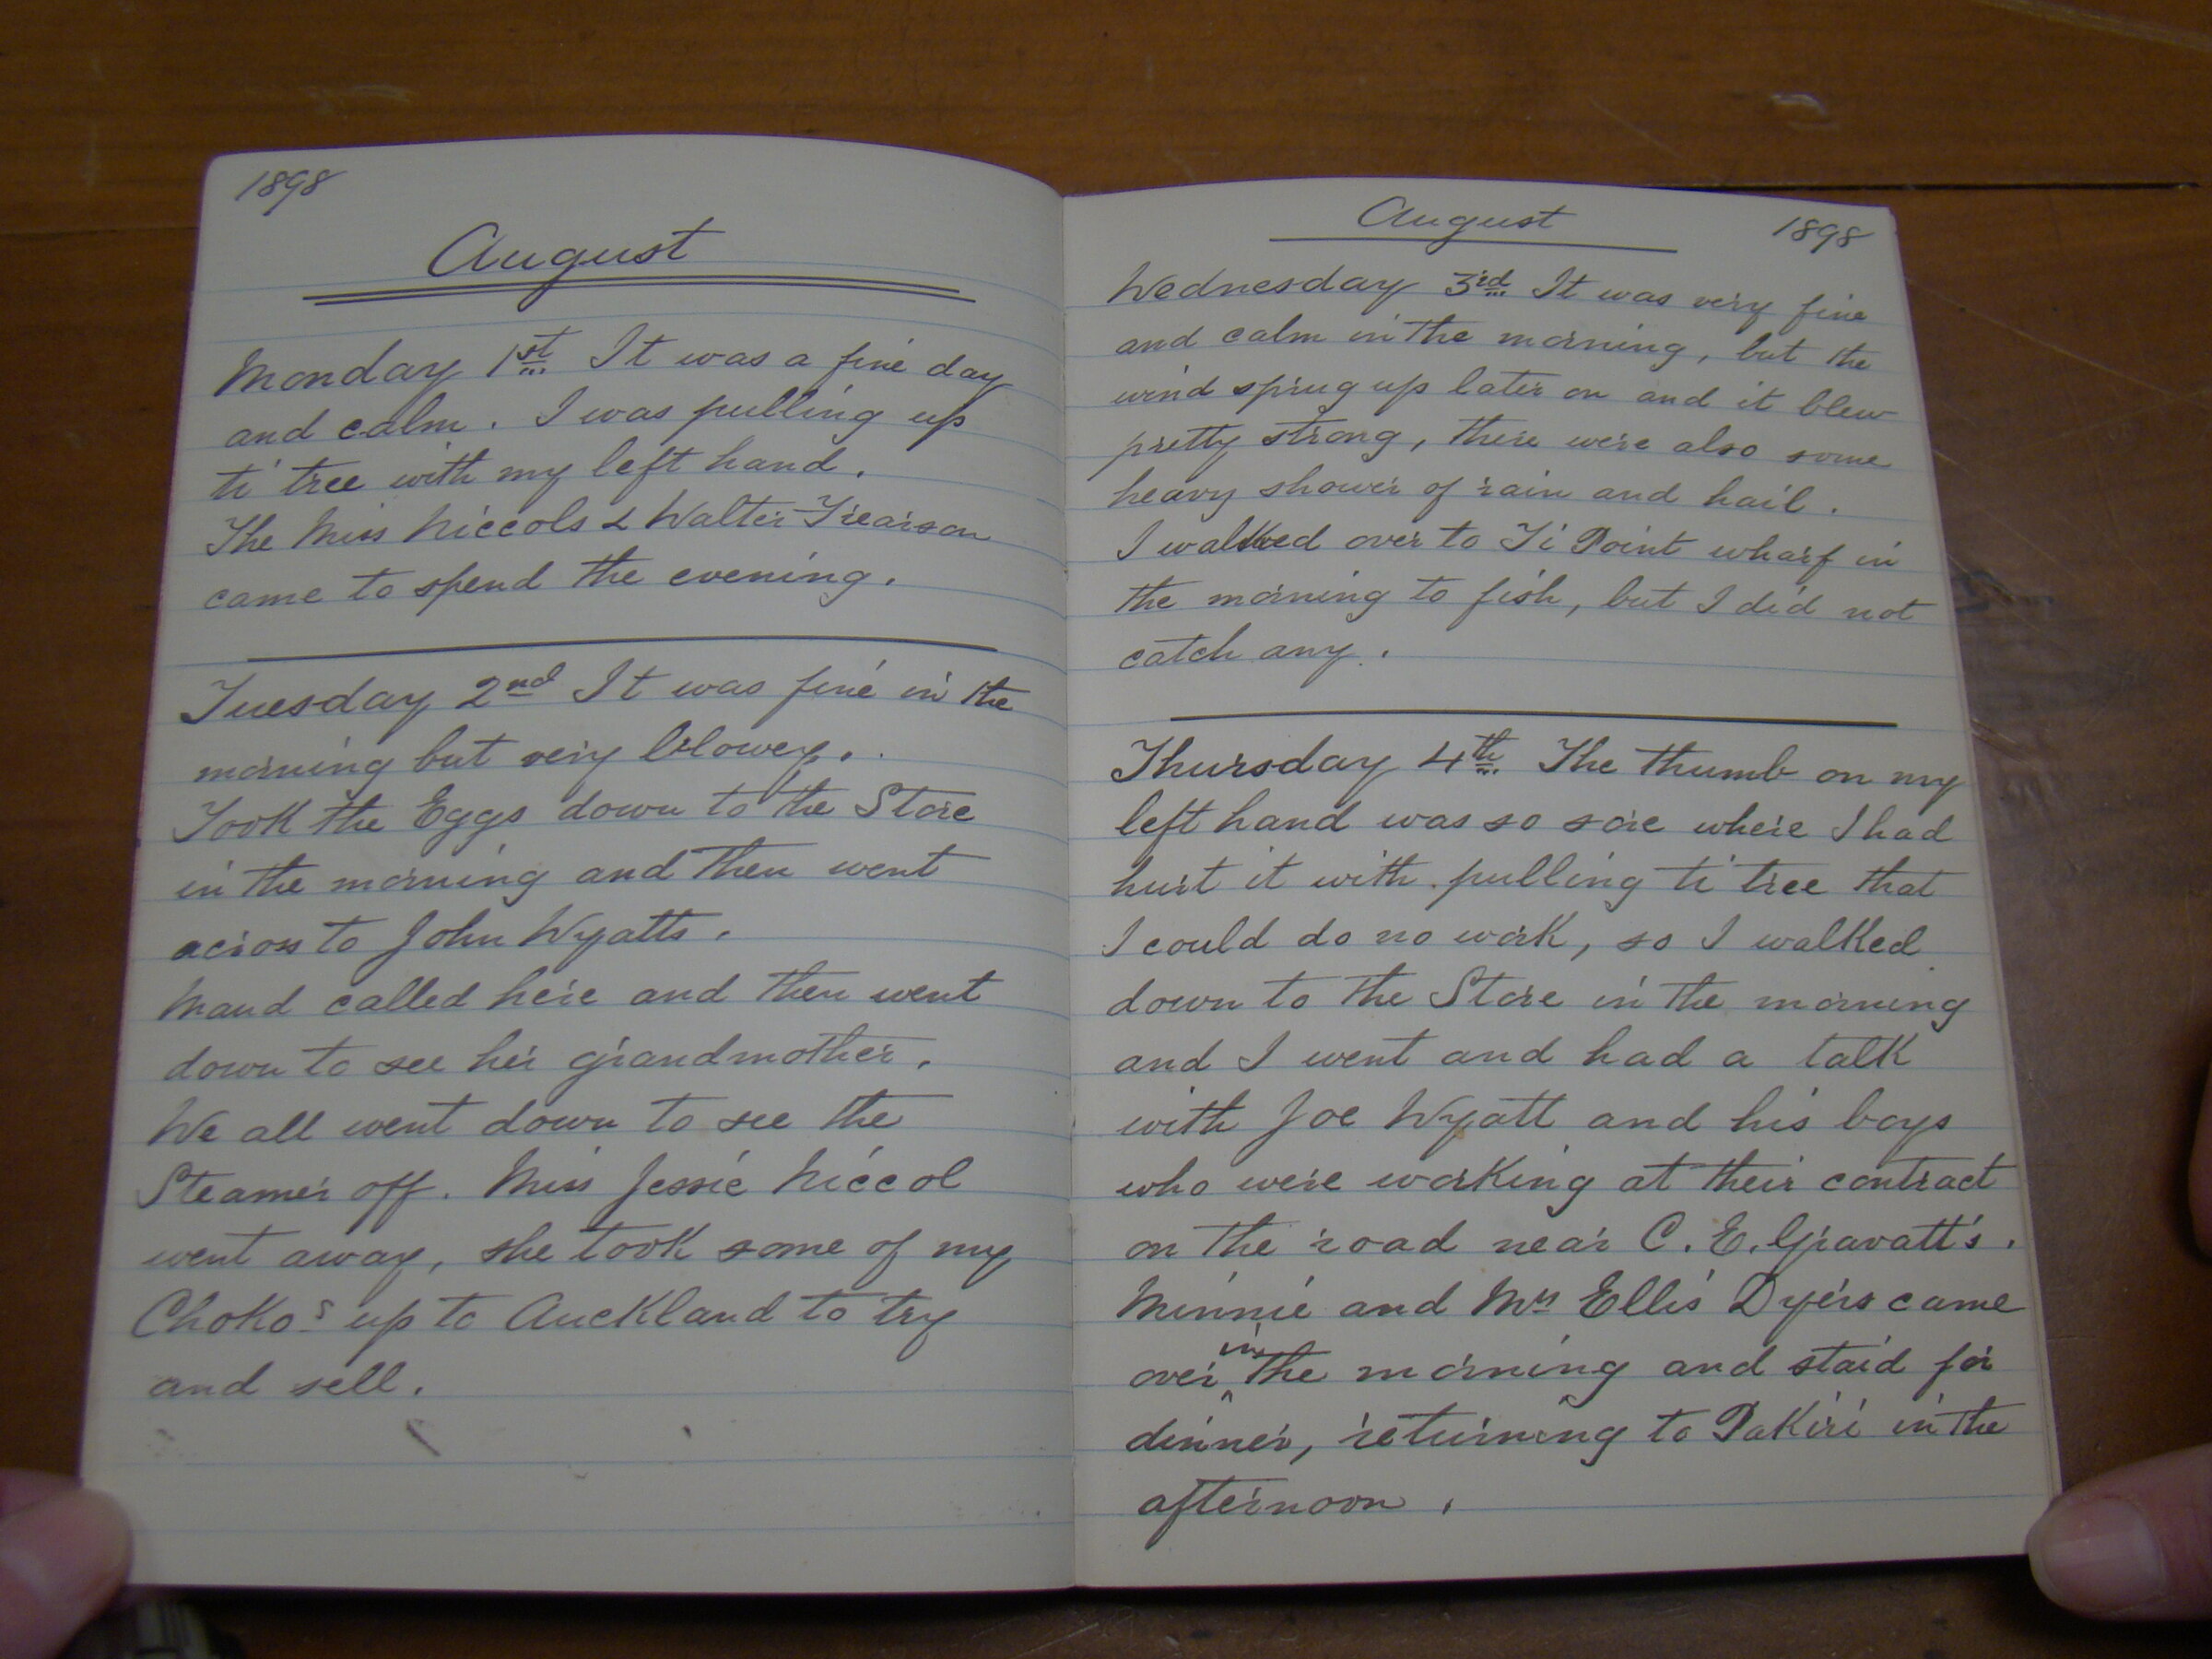 1898
August
Monday 1st It was a fine day
and calm. I was pulling up
ti tree with my left hand.
The Miss Niccols & Walter Frearson
came to spend the evening.
Tuesday 2nd It was fine in the
morning but very blowey.
Took the Eggs down to the Store
in the morning and then went
across to John Wyatts.
Maud called here and then went
down to see her grandmother.
We all went down to see the
Steamer off. Miss Jessie Niccol
went away, she took some of my
Chokos up to Auckland to try
and sell.
August 1898
Wednesday 3rd It was very fine
and calm in the morning, but the
wind sprug up later on and it blew
pretty strong, there were also some
heavy shower of rain and hail.
I walked over to Ti Point wharf in
the morning to fish, but I did not
catch any.
Thursday 4th The thumb on my
left hand was so sore where I had
hurt it with pulling ti tree that
I could do no work, so I walked
down to the Store in the morning
and I went and had a talk
with Joe Wyatt and his boys
who were working at their contract
on the road near C. E. Gravatt's.
Minnie and Mrs Ellis Dyers came
over in the morning and staid for
dinner, returning to Pakiri in the
afternoon.